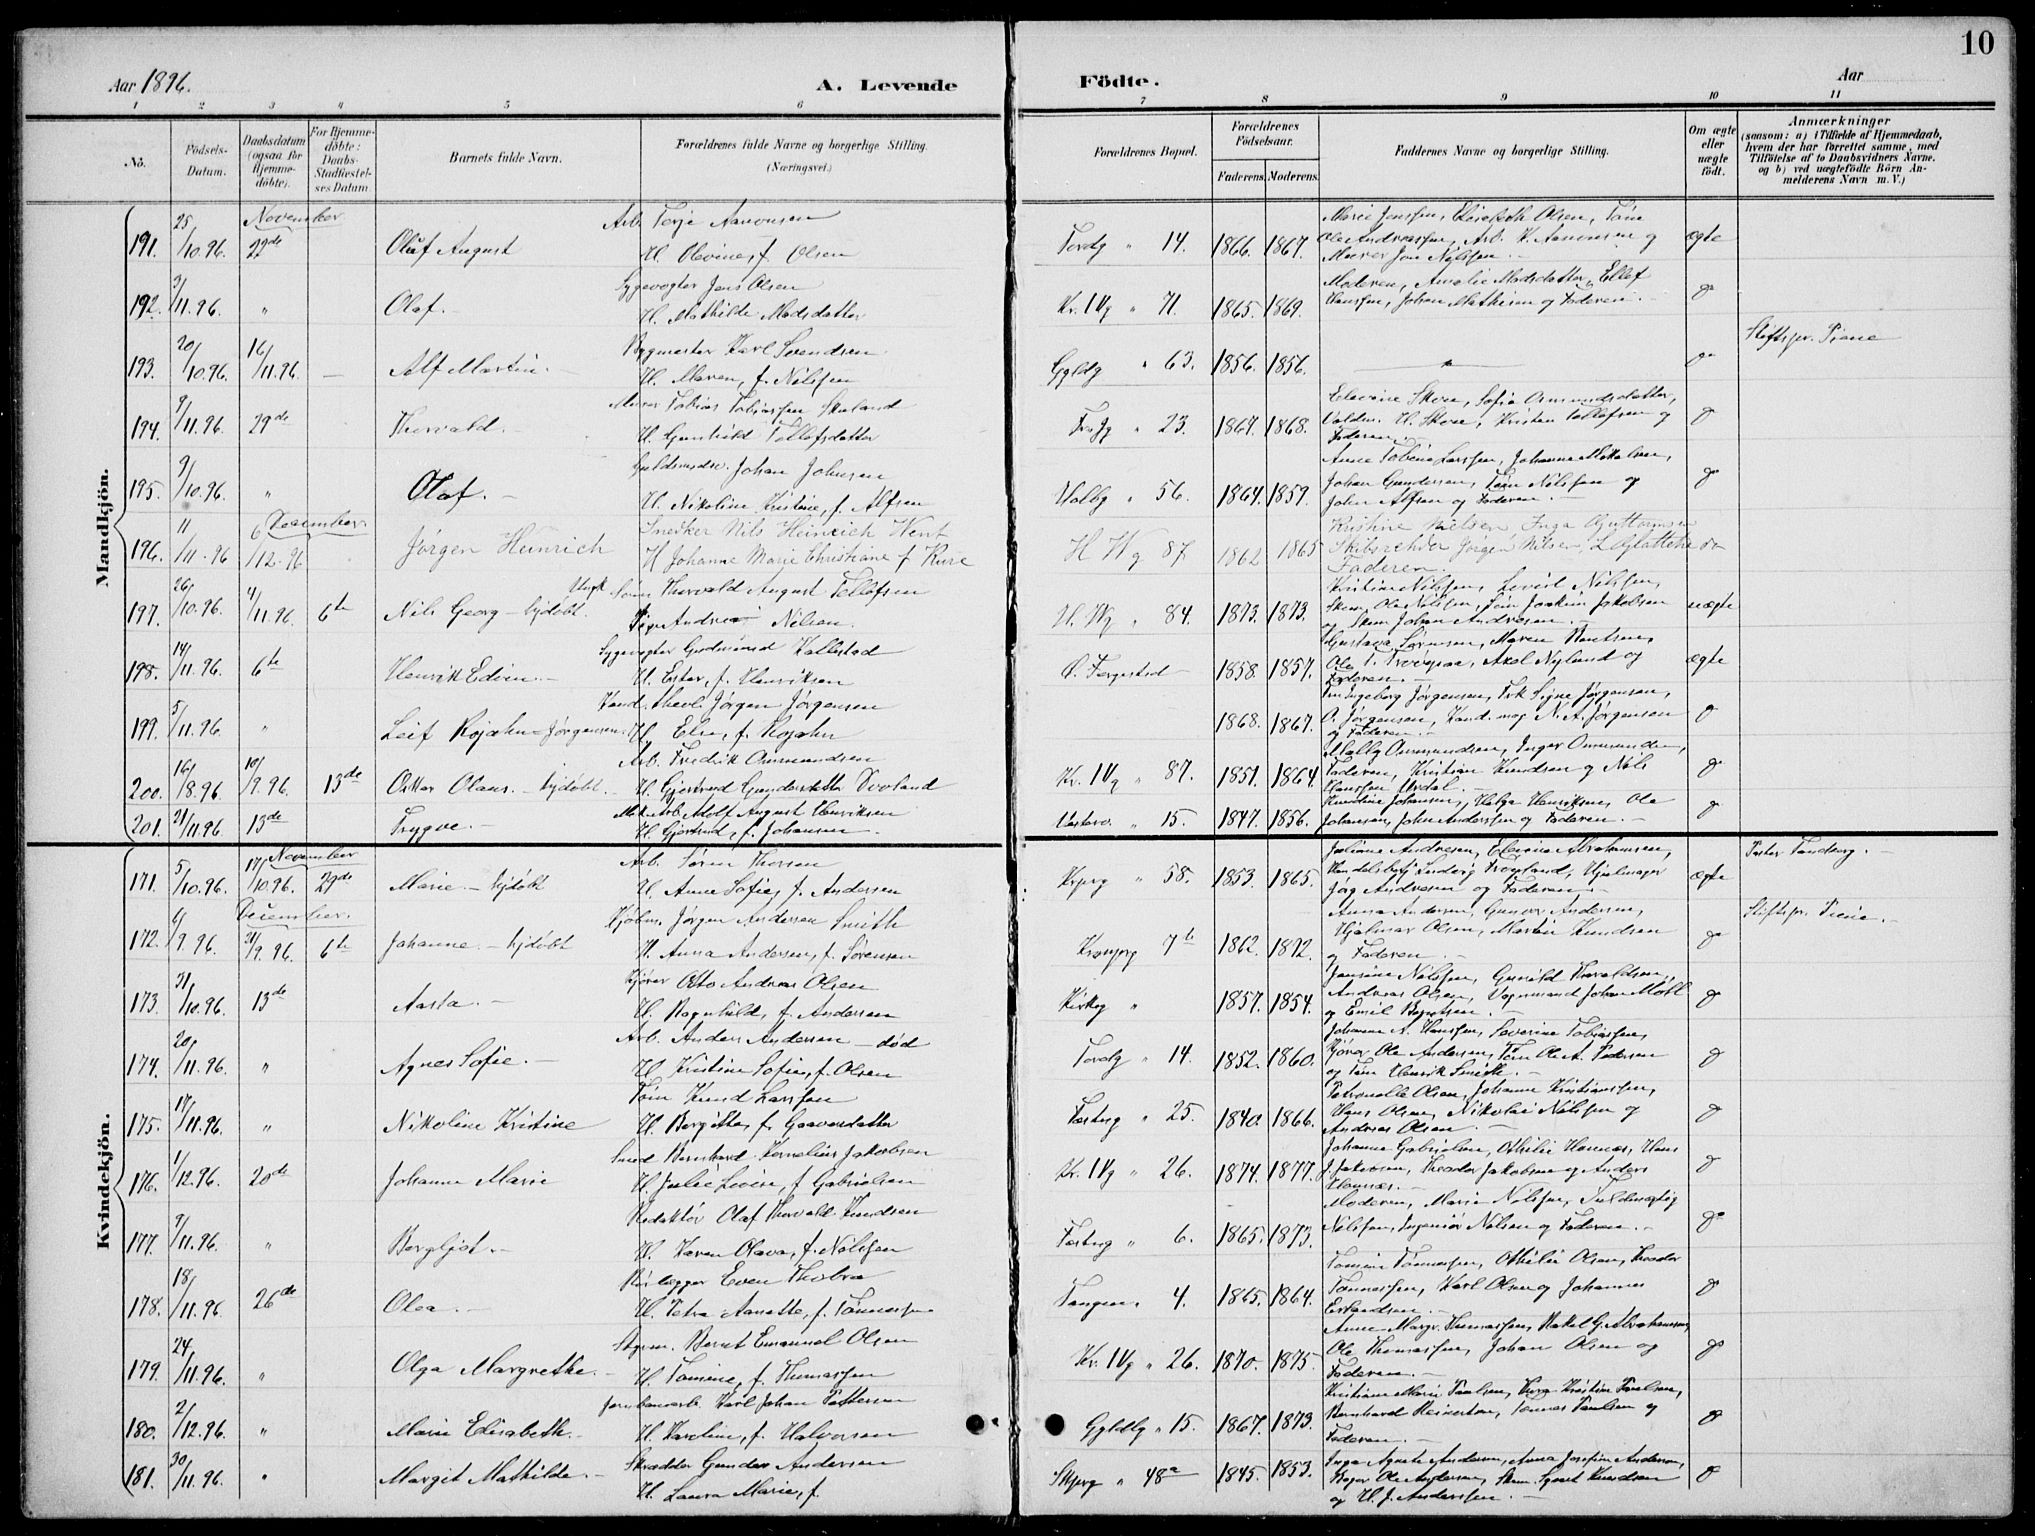 10
Aar 1896. A. Levende Födte. Aar
1 2 3 4 5 6 7 8 9 10 11
No.
Födsels-Datum.
Daabsdatum (ogsaa for Hjemme-döbte).
For Hjemme-döbte: Daabs-Stadfæstel-ses Datum
Barnets fulde Navn.
Forældrenes fulde Navne og borgerlige Stilling. (Næringsvei.)
Forældrenes Bopæl.
Forældrenes Födselsaar.
Faderens. Moderens.
Faddernes Navne og borgerlige Stilling.
Om ægte eller uægte födt.
Anmærkninger
(saasom: a) i Tilfælde af Hjemmedaab, hvem der har forrettet samme, med Tilföielse af to Daabsvidners Navne, og b) ved uægtefödte Börn An-melderens Navn m. V.)
Mandkjön.
November
191. 25/10.96. 22de Oluf August Arb. Terje Aanonsen
H. Olevine, f. Olsen
Tordg " 14. 1866. 1867. Marie Jenssen, Elisabeth Olsen, Tøm
Ole Andreassen, Arb. K. Aanonsen og
Murer Jon Nilssen.
ægte
192. 3/11.96. " Olaf. Sygevogter Jens Olsen
H. Mathilde Madsdatter
Kr. IVg " 71. 1865. 1869. Moderen, Amalie Madsdatter, Ellef
Hanssen, Johan Mathisen og Faderen.
do
193. 20/10.96. 16/11.96. — Alf Martin. Bygmester Karl Svendsen
H. Maren, f. Nilssen
Gyldg " 63. 1856. 1856. do Stiftspr. Piene
194. 9/11.96. 29de Thorvald. Murer Tobias Tobiassen Skaland
H. Gunhild Tellefsdatter
23. 1864. 1868. Elevine Skore, Sofie Omundsdatter,
Valdm. H. Skore, Kristen Tellefsen og
Faderen.
do
195. 9/10.96. " Olaf. Guldsmedm. Johan Johnsen
H. Nikoline Kristine, f. Alfsen
Volbg " 56. 1864. 1859. Anne Tobine Larssen, Johanne Mikalsen,
Johan Gundersen, Tøm Nilssen og
John Alfsen og Faderen.
do
December
196. 11/11.96 6/12.96 Jørgen Heinrich Snedker Nils Heinrich Went
H Johanne Marie Christiane f Kure
H Wg 87 1862 1865 Kristine Nielsen Inga Guttormsen
Skibsreder Jørgen Nilsen
Faderen.
do
197. 26/10.96. 4/11.96. 6te Nils Georg – hjdøbt. Thorvald August Tellefsen
Pige Andrea Nilsen.
H. Wg " 84. 1873. 1873. Kristine Nilssen, Lovise Nilssen,
Skom. Ole Nilssen, Tøm Joakim Jakobsen
og Skom Johan Andresen.
uægte
198. 14/11.96. 6te Henrik Edvin. Sygevogter Gudmund Kallestad
H. Ester, f. Henriksen
O. Fergestad 1858. 1857. Gustava Sørensen, Maren Bentsen,
Axel Nyland og
Faderen.
ægte
199. 5/11.96. " Leif Rojahn-Jørgensen. Kand. theol. Jørgen Jørgensen
H. Elin, f. Rojahn
1868. 1867. Fru Ingeborg Jørgensen, Frk Signe Jørgensen,
O. Jørgensen, Kand. mag N. A. Jørgensen
og Faderen.
do
200. 16/8.96. 10/9.96. 13de Oskar Olaus. – hjdøbt. Arb. Fredrik Ommundsen
H. Gjertrud Gundersdatter
Kr. IVg " 87. 1851. 1864. Mally Ommundsen, Inger Ommundsen,
Faderen, Kristian Knudsen og Nils
Hanssen
do
201. 21/11.96. 13de Trygve. Mek. Arb. Adolf August Henriksen
H. Gjertrud, f. Johansen.
Vestero. " 15. 1847. 1856. Knudine Johansen, Helga Henriksen, Ole
Johansen, John Anderssen og Faderen.
do
Kvindekjön.
November
171. 5/10.96. 17/10.96. 29de Marie – hjdøbt Arb. Søren Thorsen
H. Anne Sofie, f. Andersen
58. 1853. 1865. Juliane Andresen, Elevine Abrahamsen,
Handelsbetj Ludvig Frøyland, Hjelmager
Jørg Andresen og Faderen.
ægte Pastor Tandberg.
December.
172. 6/9.96. 21/9.96. 6te Johanne. – hjdøbt Kjøbm. Jørgen Andersen Smith
H. Anna Andersen, f. Sørensen
7b 1862. 1872. Anna Andersen, Gunvor Andersen,
Hjalmar Olsen, Martin Knudsen
og Faderen.
do Stiftspr. Piene.
173. 31/10.96. 13de Aasta. Kjører Otto Andreas Olsen
H. Ragnhild, f. Andersen
Kirkeg " 1857. 1854. Jensine Nilssen, Gunild Haraldsen,
Andreas Olsen, Vognmand Johan Moll
og Emil Berntsen.
do
174. 20/11.96. " Agnes Sofie. Arb. Anders Andersen – død
H. Kristine Sofie, f. Olsen
Tordg " 14. 1852. 1860. Johanne A. Hanssen, Severine Tobiassen,
Kjører Ole Andersen, Tøm Ole A. Pedersen
og Tøm Henrik Smith.
do
175. 17/11.96. " Nikoline Kristine Tøm Knud Larssen
H. Bergitha, f. Gaversdatter
Festng " 25. 1840. 1866. Petronelle Olsen, Johanne Kristianssen,
Hans Olsen, Nikolai Nilssen og
Andreas Olsen.
do
176. 1/12.96. 20de Johanne Marie Smed Bernhard Kornelius Jakobsen
H. Julie Lovise, f. Gabrielsen
Kr. IVg " 26. 1874. 1877. Johanne Gabrielsen, Othilie Hannæs, Hans
J. Jakobsen, Theodor Jakobsen og Anders
Hannæs.
do
177. 9/11.96. " Bergljot. Redaktør Olaf Thorvald Knudsen
H. Karen Olava, f. Nilssen
Festng " 6. 1865. 1873. Moderen, Marie Nilssen, Fuldmægtig
Nilssen, Ingeniør Nilsen og Faderen.
do
178. 18/11.96 26de Olea. Rørlægger Even Thobro
H. Petra Annette, f. Tønnessen
Tangen. 4. 1865. 1864. Tomine Tønnessen, Othilie Olsen, Theodor
Tønnessen, Karl Olsen og Johannes
Erlandsen.
do
179. 24/11.96. " Olga Margrethe. Styrm. Bernt Emanuel Olsen
H. Tomine, f. Thomassen
Kr. IVg " 26. 1870. 1875. Anne Margr. Thomassen, Rakel G. Abrahamsen,
Ole Thomassen, Johan Olsen og
Faderen.
do
180. 2/12.96. " Marie Elisabeth. Jernbanearb. Karl Johan Pettersen
H. Karoline, f. Halvorsen
Gyldlg " 15. 1867. 1873. Kristiane Marie Paulsen, Thora Kristine Paulsen,
Bernhard Reinertsen, Tønnes Paulsen og
Faderen.
do
181. 30/11.96. " Margit Mathilde. Skrædder Gunder Andersen
H. Laura Marie, f.
48a 1845. 1853. Inga Agnete Andersen, Anna Josefine Andersen,
Bager Ole Andersen, Skom. Sjvert Knudsen
og H. J. Anderssen.
do